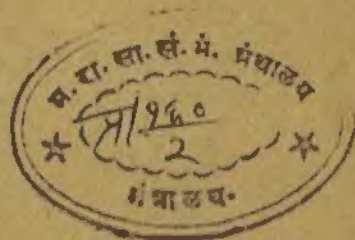 म. रा. सा. सं. मं. ग्रंथालय
१६०
२
ग्रंथालय.